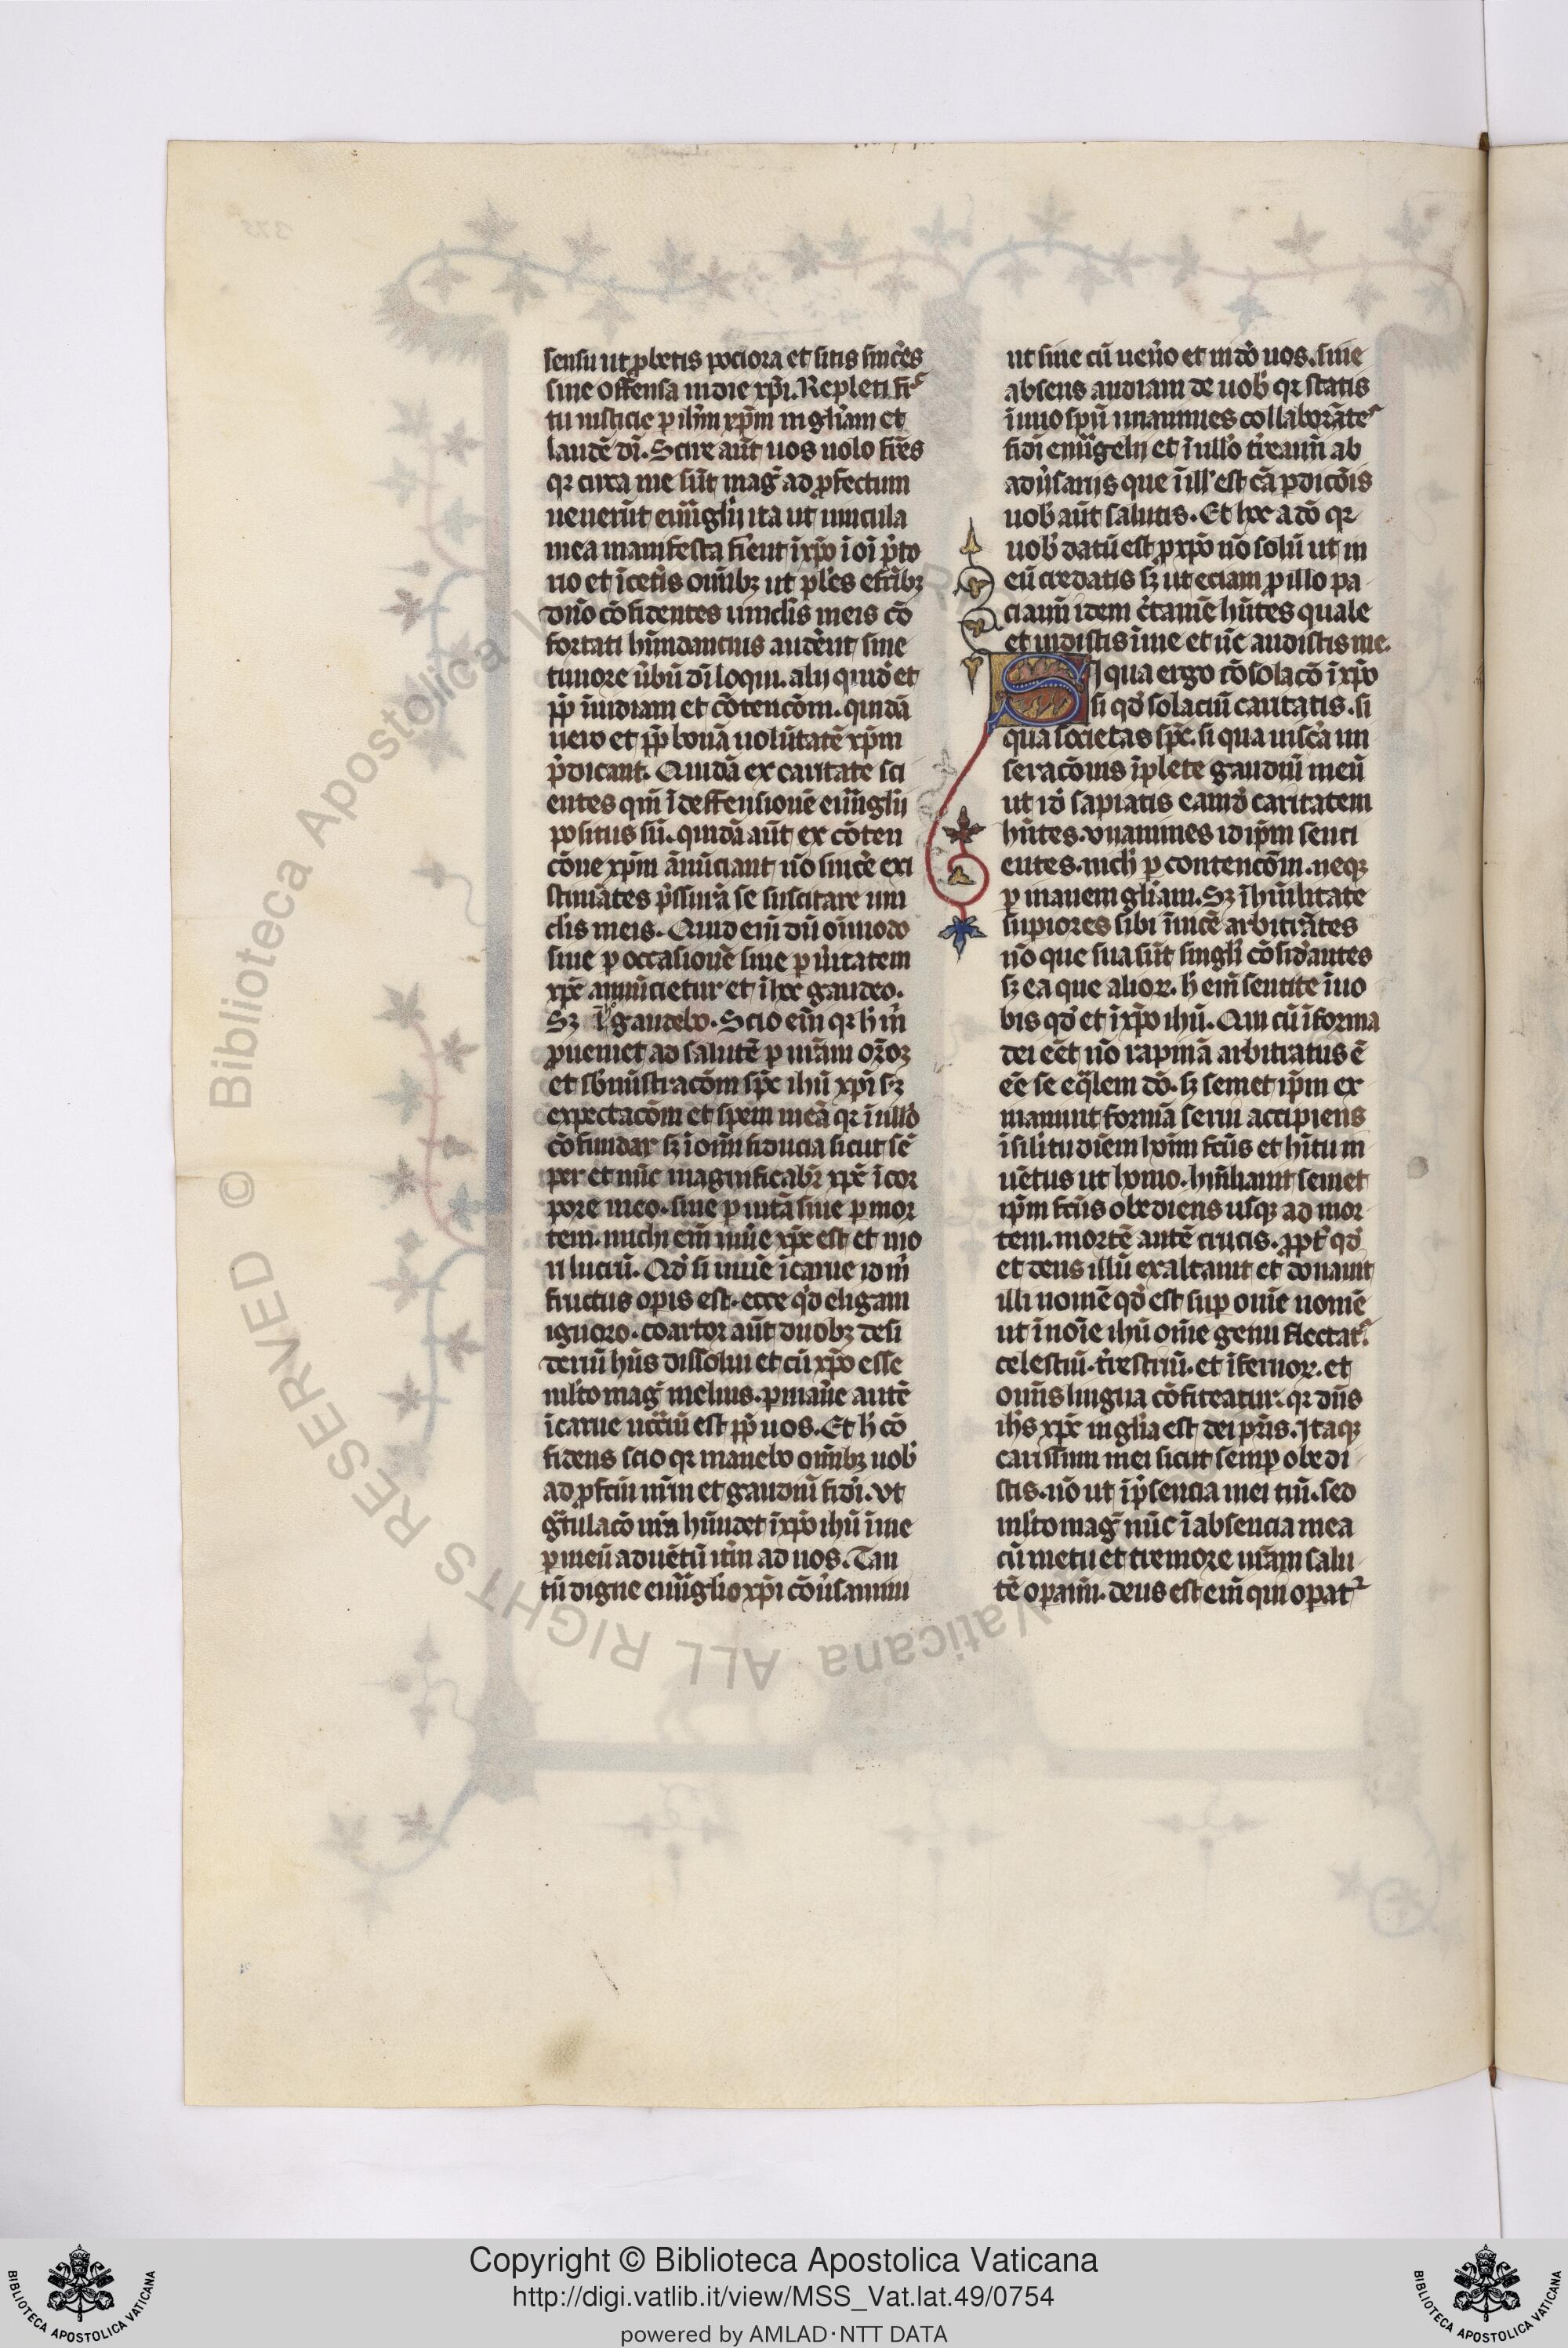 sensu ut ꝓbetis pociora et sitis sinceͬs
sine offensa in die xp̄i. Repleti fr̄
tu iusticie ꝑ ih̄m xp̄m in gliā̄m et
laudē dī. Scire aūt uos uolo frēs
qꝛ circa me sūt maḡ ad ꝓfectum
uenerūt euu̅gl̄ij ita ut uincula
mea manifesta fierent ī xp̄o ī oī p̄to
rio et ī cet̄is om̄ibꝫ ut pl̄es e fr̄ibꝫ
dn̄o cōfidentes uincl̄is meis cō
fortati hūndancius audērent sine
timore ūbū dī loqui. alij quidē et
ꝓp̄ inuidiam et cōtencōm. quidā
uero et ꝓp̄ bonā uolūtatē xp̄m
p̄dicant. Quidā ex caritate sci
entes qm̄ ī deffensionē euu̅gl̄ij
positus sū. quidā aūt ex cōten
cōne xp̄m ānūciant nō sincē exi
stimātes p̄ssurā se suscitare uin
clis meis. Quid eni̅ dū oīmodo
siue ꝑ occasionē siue ꝑ ūitatem
xp̄c annūcietur et ī hoc gaudeo.
Sꝫ ī gaudebo. Scio eni̅ qꝛ h̄ m̄
ꝓueniet ad salutē ꝑ urām orōꝫ
et sb̄mīstracōm sp̄c ihū xp̄i sꝫ
expectacōm et spem meā qꝛ ī nullo
cōfundar sꝫ ī om̄i fiducia sicut sē
per et nūc magnificabr̄ xp̄c ī cor
pore meo. siue ꝑ uitā siue ꝑ mor
tem. michi eni̅ uiuē xp̄c est et mo
ri lucrū. Qd̄ si uiuē ī carne id m̄
fructus opis est. ecce qd̄ eligam
ignoro. coartor aūt duobꝫ desi
deriū hn̄s dissolui et cū xp̄o esse
ml̄to maḡ melius. ꝑmanē autē
ī carne nccīū est ꝓp̄ uos. Et h̄ cō
fidens scio qꝛ manebo om̄ibꝫ uob̄
ad ꝓfcīū ur̄m et gaudiū fidī. vt
gr̄tulacō ur̄a hūndet ī xp̄o ihū ī me
ꝑ meū aduētū it̄m ad uos. Tan
tū digne euu̅gl̄io xp̄i cōūsamini
ut siue cū ueńo et uidō uos. siue
absens audiam de uob̄ qꝛ statis
ī uno spū unanimes collaborātes
fidī euu̅gelij et ī nullo t̄reamī ab
aduˀsariis que ill̄ est cā ꝑdicōis
uob̄ aūt salutis. Et hoc a dō qꝛ
uob̄ datū est ꝓ xp̄o nō solū ut in
eū credatis sꝫ ut eciam ꝓ illo pa-
ciamī idem c̄tamē hn̄tes quale
et uidistis ī me et nūc audistis me.
SI qua ergo cōsolacō ī xp̄o
si qd̄ solaciū caritatis. si
qua societas sp̄c. si qua uisc̄a mi
seracōnis īplete gaudiū meū
ut idē sapiatis eandē caritatem
hn̄tes. vnanimes id ip̄m senci
entes. nich̄ ꝑ contencōm. neqꝫ
ꝑ inanem gliā̄m. Sꝫ ī hūilitate
supiores sibi īuicē arbitrātes
nō que sua sūt singl̄i cōsidāntes
sꝫ ea que alioꝝ. h̄ eni̅ sentite ī uo
bis qd̄ et ī xp̄o ihū. Qui cū ī forma
dei eēt nō rapinā arbitratus ē
eē se eq̄lem dō. sꝫ semet ip̄m ex
inaniuit formā serui accipiens
ī sil̄itudiēm hoīm fcūs et hītu in
uētus ut homo. hūiliauit semet
ip̄m fcūs obediens usqꝫ ad mor
tem. mortē autē crucis. ꝓpt̄ qd̄
et deus illū exaltauit et donauit
illi nomē qd̄ est sup om̄e nomē
ut ī noīe ihū om̄e genu flectat̄.
celestiū. t̄restriū. et īfernoꝝ. et
om̄is lingua cōfiteatur. qꝛ dn̄s
ih̄s xp̄c in gl̄ia est dei pr̄is. Itaqꝫ
carissimi mei sicut semꝑ obedi-
stis. nō ut ī p̄sencia mei tm̄. sed
ml̄to maḡ nūc ī absencia mea
cū metu et tremore ur̄am salu-
tē opamī. deus est eni̅ qui opat̄
© Biblioteca Apostolica Vaticana ALL RIGHTS RESERVED
Copyright © Biblioteca Apostolica Vaticana
http://digi.vatlib.it/view/MSS_Vat.lat.49/0754
powered by AMLAD·NTT DATA
BIBLIOTECA APOSTOLICA VATICANA
BIBLIOTECA APOSTOLICA VATICANA